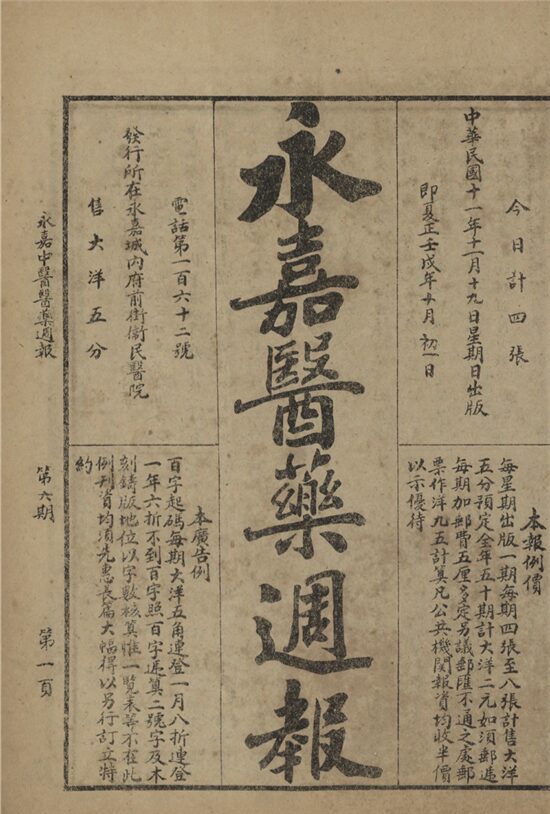 今日計四張
中華民國十一年十一月十九日星期日出版
即夏正壬戌年十月初一日
本報例價
每星期出版一期每期四張至八張計售大洋
五分預定全年五十期計大洋二元如須郵遞
每期加郵費五厘多定另議郵匯不通之處郵
票作洋九五計算凡公共機関報資均收半價
以示優待
永嘉醫藥週報
電話第一百六十二號
發行所在永嘉城内府前街衛民醫院
售大洋五分
本廣告例
百字起碼每期大洋五角連登一月八折連登
一年六折不到百字照百字遞算二號字及木
刻鑄版地位以字數核算惟一覽表等不在此
例刊資均須先惠長篇大幅得以另行訂立特
約
永嘉中醫醫藥週報
第六期
第一頁